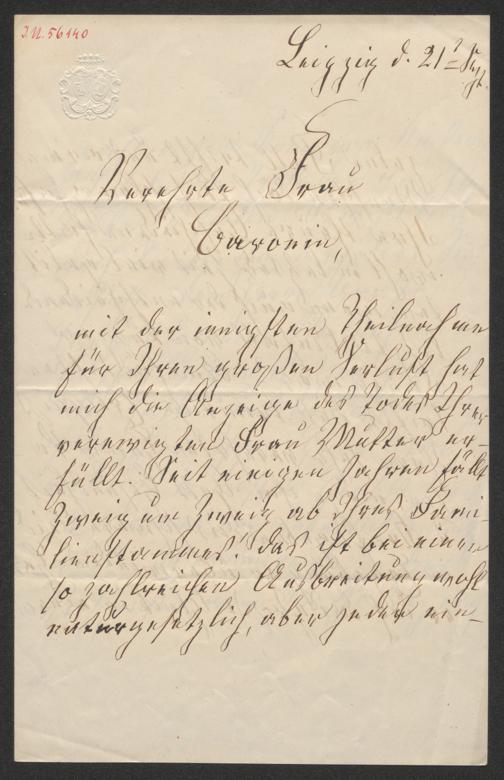 I.N. 56140
Leipzig d. 21t Sept.
Verehrte Frau
Baronin,
mit der innigsten Theilnahme
für Ihren großen Verlust hat
mich die Anzeige des Todes Ihrer
verewigten Frau Mutter er-
füllt. Seit einigen Jahren fällt
Zweig um Zweig ab Ihres Fami-
lienstammes! das ist bei einer
so zahlreichen Ausbreitung wohl
naturgesetzlich, aber jeder ein-